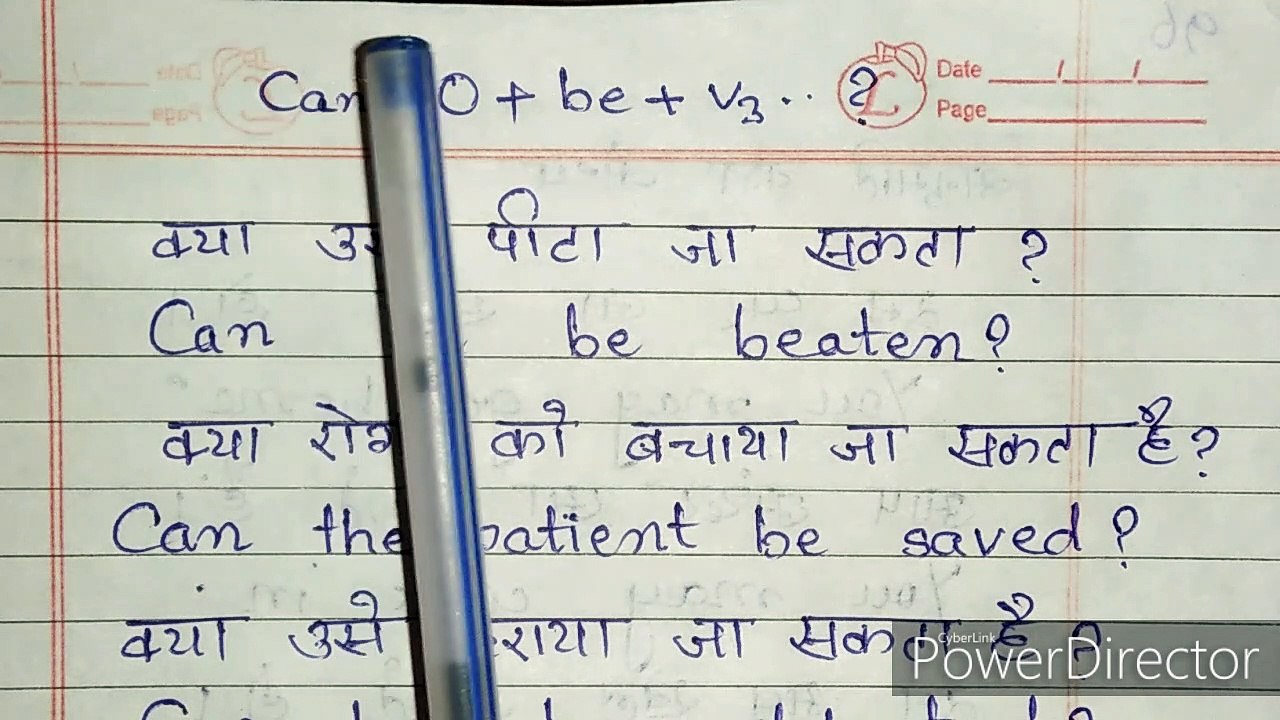 Can O + be + V3 .. ?
Date
Page
क्या पीटा जा सकता ?
Can be beaten?
क्या को बचाया जा सकता है?
Can the patient be saved?
क्या उसे जा सकता है ?
CyberLink
PowerDirector